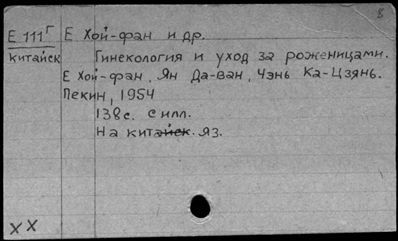 8
Е 111г Е Хой-фан и др.
китайск Гинекология и уход за роженицами.
Е Хой-фан, Ян Да-ван, Чэнь Ка-Цзянь.
Пекин, 1954
138с. с илл.
На китайск. яз.
XX